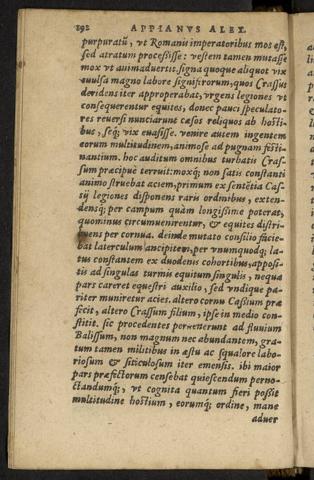 192 APPIANVS ALEX.
purpuratū, vt Romanis imperatoribus mos est,
sed atratum processisse: vestem tamen mutasse
mox vt animaduertit. signa quoque aliquot vix
euulsa magno labore signiferorum, quos Crassus
deridens iter approperabat, vrgens legiones vt
consequerentur equites, donec pauci speculato-
res reuersi nunciarunt cæsos reliquos ab hosti-
bus, seq; vix euasisse. venire autem ingentem
eorum multitudinem, animose ad pugnam festi-
nantium. hoc auditum omnibus turbatis Cras-
sum præcipuè terruit: moxq; non satis constanti
animo struebat aciem, primum ex sentētia Cas-
sij legiones disponens raris ordinibus, exten-
densq; per campum quàm longissime poterat,
quominus circumuenirentur, & equites distri-
buens per cornua. deinde mutato consilio facie-
bat laterculum ancipitem, per vnumquodq; la-
tus constantem ex duodenis cohortibus, apposi-
tis ad singulas turmis equitum singulis, nequa
pars careret equestri auxilio, sed vndique pa-
riter muniretur acies. altero cornu Cassium præ
ficit, altero Crassum filium, ipse in medio con-
stitit. sic procedentes peruenerunt ad fluuium
Balissum, non magnum nec abundantem, gra-
tum tamen militibus in æstu ac squalore labo-
riosum & siticulosum iter emensis. ibi maior
pars præfectorum censebat quiescendum perno-
ctandumq;, vt cognita quantum fieri possit
multitudine hostium, eorumq; ordine, mane
aduer